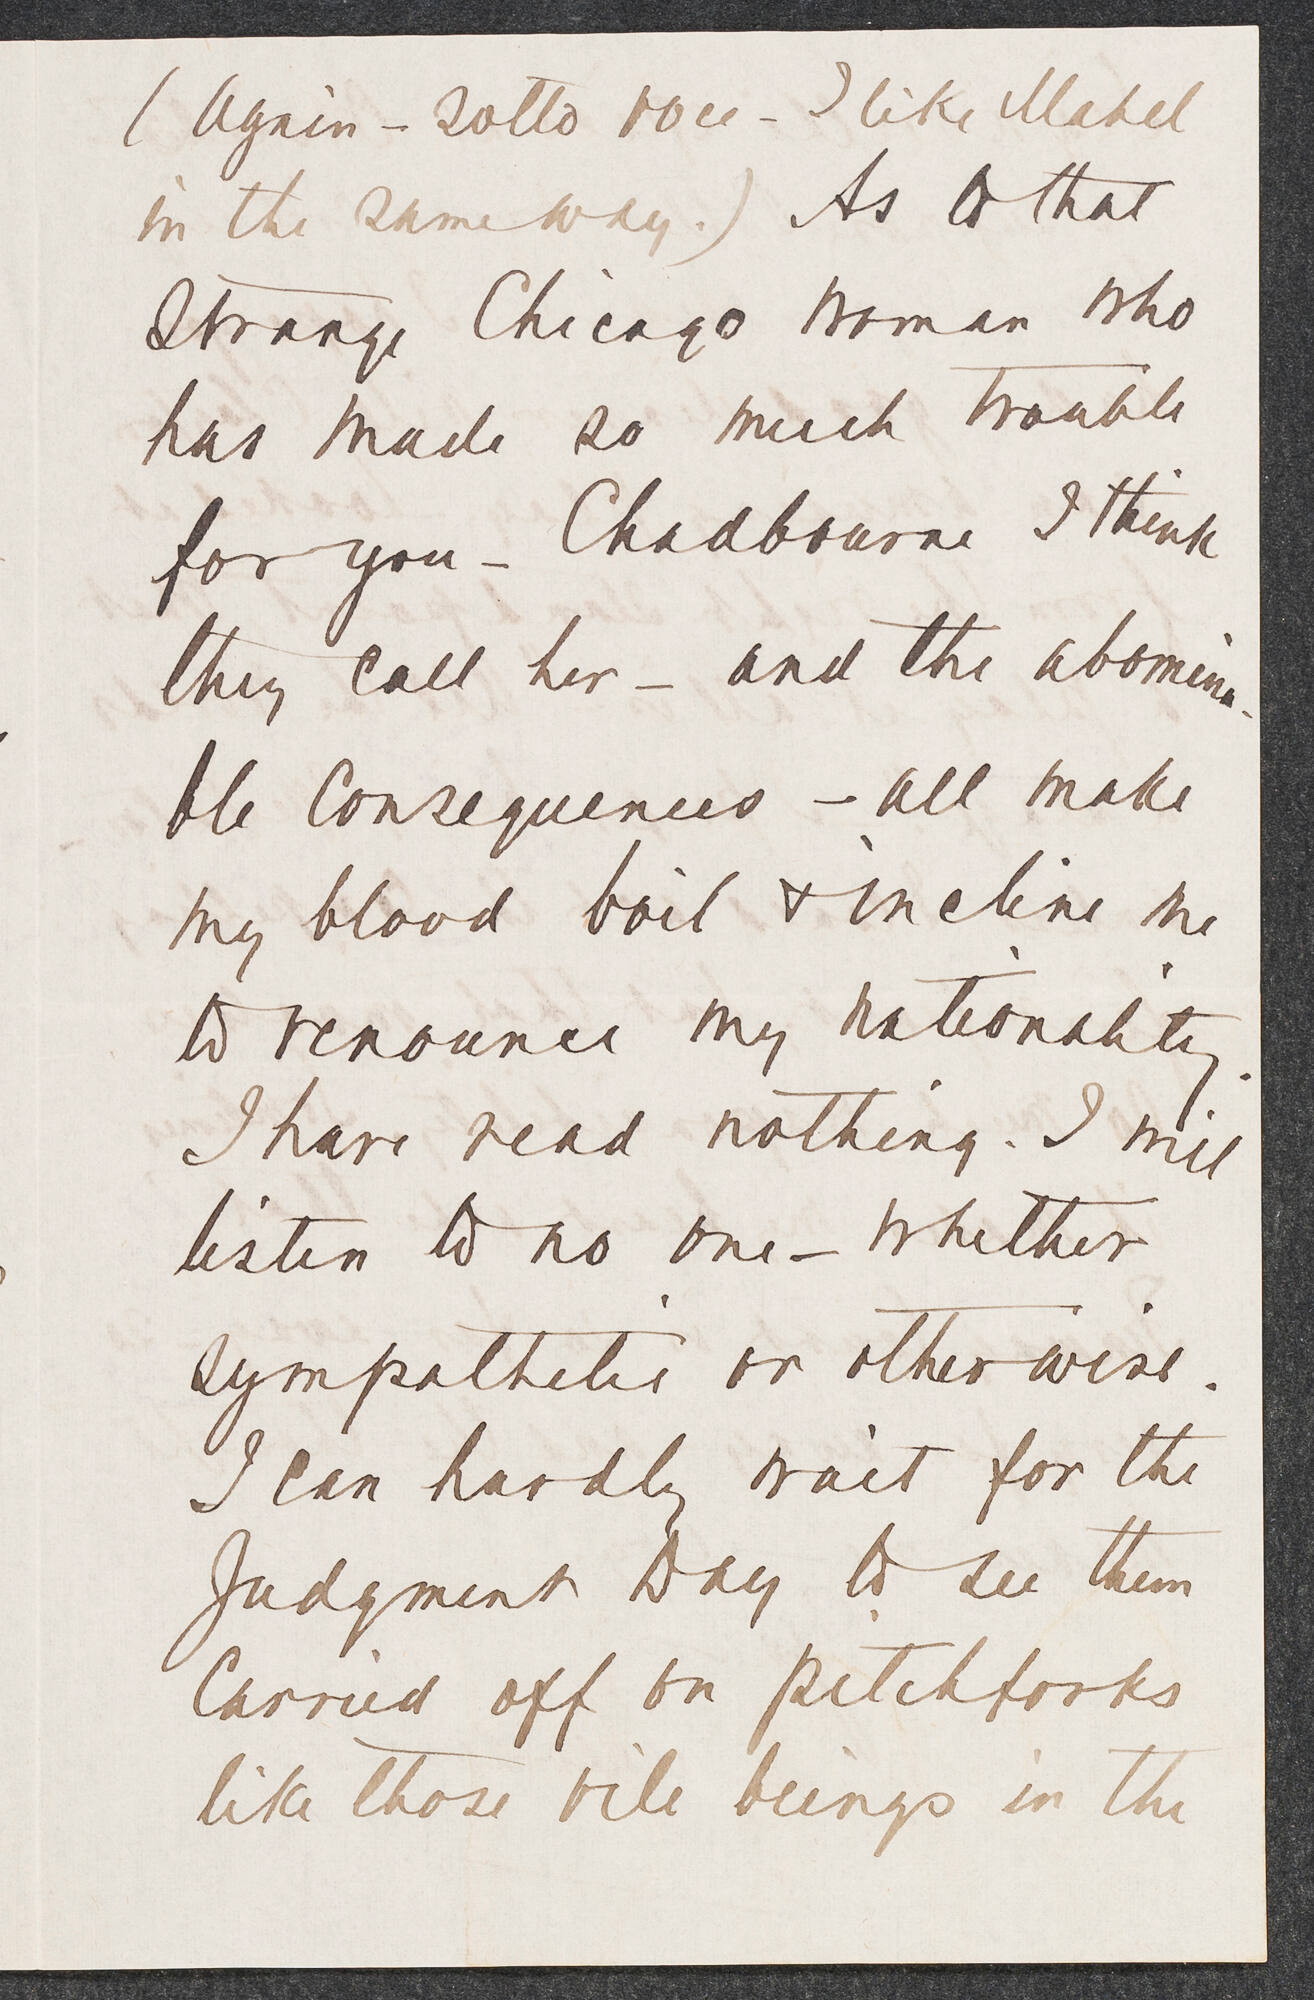 (Again – sotto voce – I like Mabel
in the same way.) As to that
strange Chicago woman who
has made so much trouble
for you – Chadbourne I think
they call her – and the abomina-
ble consequences – all make
my blood boil & incline me
to renounce my nationality.
I have read nothing. I will
listen to no one – whether
sympathetic or otherwise.
I can hardly wait for the
Judgment Day to see them
carried off on pitchforks
like those vile beings in the